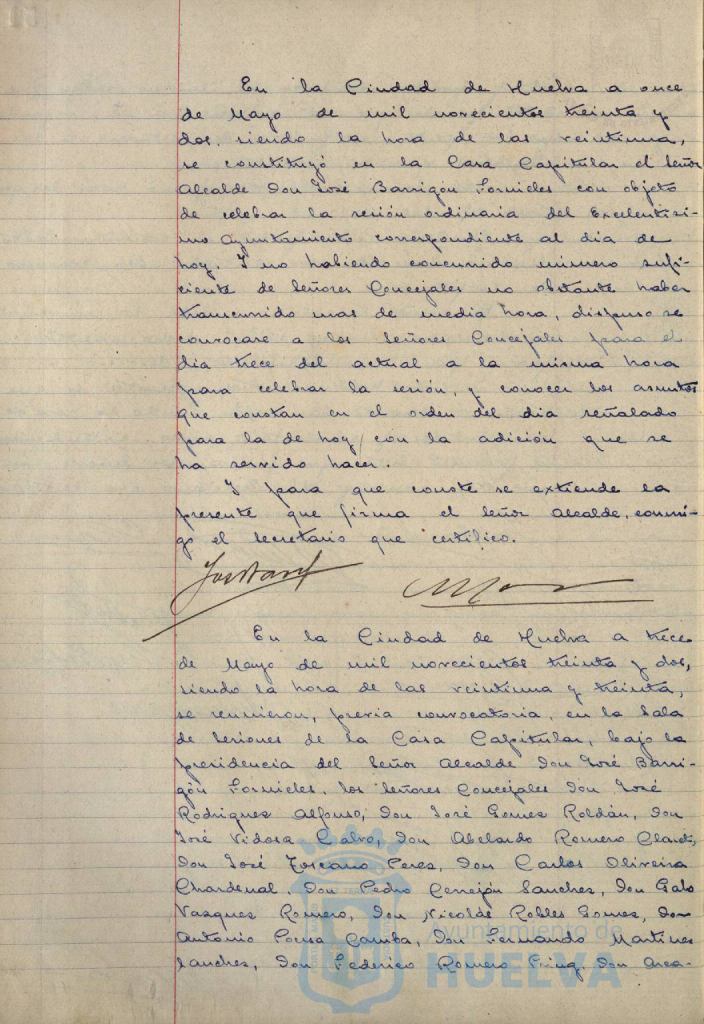 En la Ciudad de Huelva a once
de Mayo de mil novecientos treinta y
dos, siendo la hora de las veintiuna,
se constituyó en la Casa Capitular el Señor
Alcalde Don José Barrigón Fornieles con objeto
de celebrar la sesión ordinaria del Excelentísi-
mo Ayuntamiento correspondiente al día de
hoy. Y no habiendo concurrido número sufi-
ciente de Señores Concejales no obstante haber
transcurrido mas de media hora, dispuso se
convocare a los Señores Concejales para el
día trece del actual a la misma hora
para celebrar la sesión, y conocer los asuntos
que constan en el orden del día señalado
para la de hoy, con la adición que se
ha servido hacer.
Y para que conste se extiende la
presente que firma el Señor Alcalde, conmi-
go el Secretario que certifico.
En la Ciudad de Huelva a trece
de Mayo de mil novecientos treinta y dos,
siendo la hora de las veintiuna y treinta,
se reunieron, previa convocatoria, en la Sala
de Sesiones de la Casa Capitular, bajo la
presidencia del Señor Alcalde Don José Barri-
gón Fornieles, los Señores Concejales Don José
Rodriguez Alfonso, Don José Gomez Roldán, Don
José Vidosa Calvo, Don Abelardo Romero Claret,
Don José Toscano Perez, Don Carlos Oliveira
Chardenal, Don Pedro Cerrejón Sanchez, Don Galo
Vazquez Romero, Don Nicolás Robles Gomez, Don
Antonio Ponsa Camba, Don Fernando Martinez
Sanchez, Don Federico Romero Don Arca-
Ayuntamiento de
HUELVA